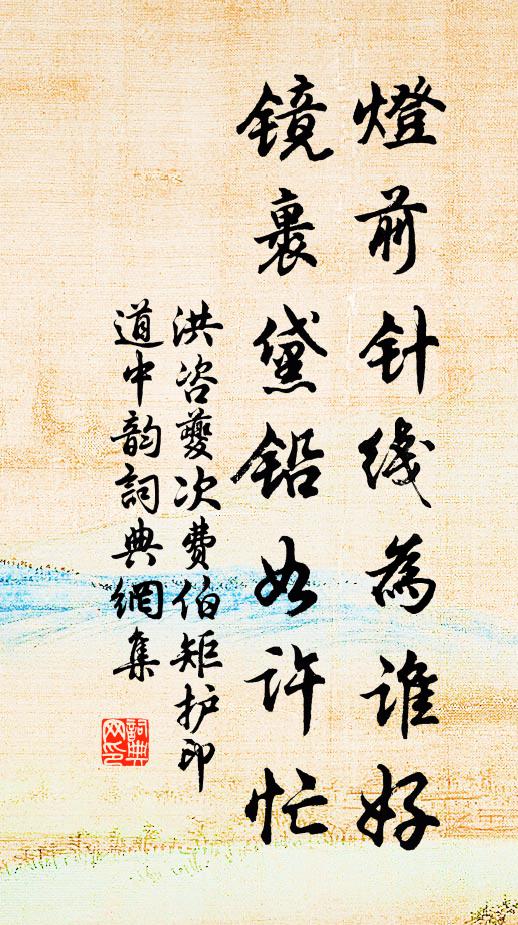 燈前针线為誰好
镜裹黛铅如许忙
洪咨夔次费伯矩护印
道中韵詞典網集
詞典网印